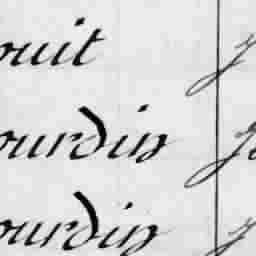 ouit
ourdin
ourdin